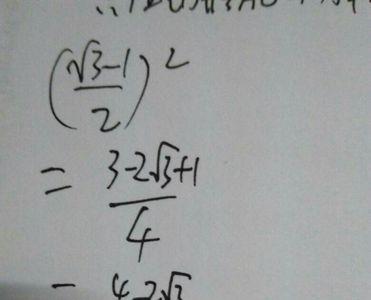 (√3-1/2)²
= 3-2√3+1/4
= 4-2√3